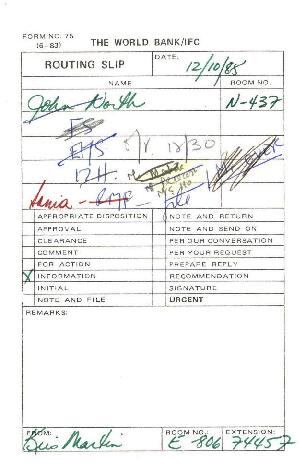 FORM NO. 75
(6-83)
THE WORLD BANK/IFC
ROUTING SLIP
DATE:
12/10/85
NAME
ROOM NO.
John North
N-437
12/30
Tania -
APPROPRIATE DISPOSITION NOTE AND RETURN
APPROVAL NOTE AND SEND ON
CLEARANCE PER OUR CONVERSATION
COMMENT PER YOUR REQUEST
FOR ACTION PREPARE REPLY
X INFORMATION RECOMMENDATION
INITIAL SIGNATURE
NOTE AND FILE URGENT
REMARKS:
FROM:
ROOM NO.:
EXTENSION:
Martin
E 806
74457